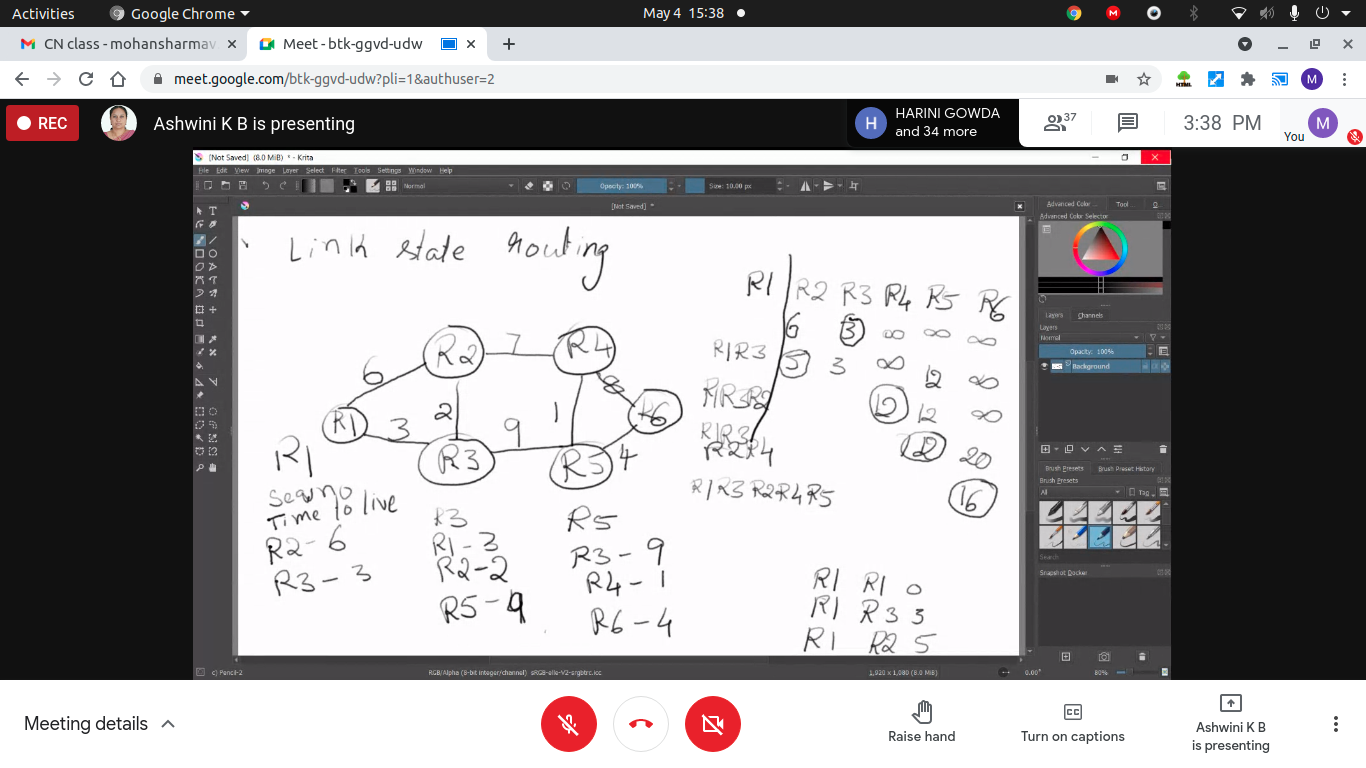 Activities
Google Chrome
May 4 15:38
CN class - mohansharmav
Meet - btk-ggvd-udw
meet.google.com/btk-ggvd-udw?pli=1&authuser=2
M
REC
Ashwini K B is presenting
H
HARINI GOWDA
and 34 more
37
3:38 PM
You
M
[Not Saved] (8.0 MiB) * - Krita
File Edit View Image Layer Select Filter Tools Settings Window Help
Normal
Opacity: 100%
Size: 10.00 px
[Not Saved] *
Link state routing
R1 R2 R3 R4 R5 R6
6 3 ∞ ∞ ∞
R1R3 5 3 ∞ 12 ∞
R1R3R2 12 12 ∞
R1R3
R2R4 12 20
R1R3R2R4R5 16
R2 7 R4
6 2 1 8
R1 3 R3 9 R5 4 R6
R1
Seq no
Time to live
R2 - 6
R3 - 3
R3
R1 - 3
R2 - 2
R5 - 9
R5
R3 - 9
R4 - 1
R6 - 4
R1 R1 0
R1 R3 3
R1 R2 5
Advanced Color ...
Tool ...
Advanced Color Selector
Layers Channels
Layers
Normal
Opacity: 100%
Background
Brush Presets Brush Preset History
Brush Presets
All
Tag
Search
Snapshot Docker
c) Pencil-2
RGB/Alpha (8-bit integer/channel) sRGB-elle-V2-srgbtrc.icc
1,920 x 1,080 (8.0 MiB)
0.00°
80%
Meeting details
Raise hand
Turn on captions
Ashwini K B
is presenting